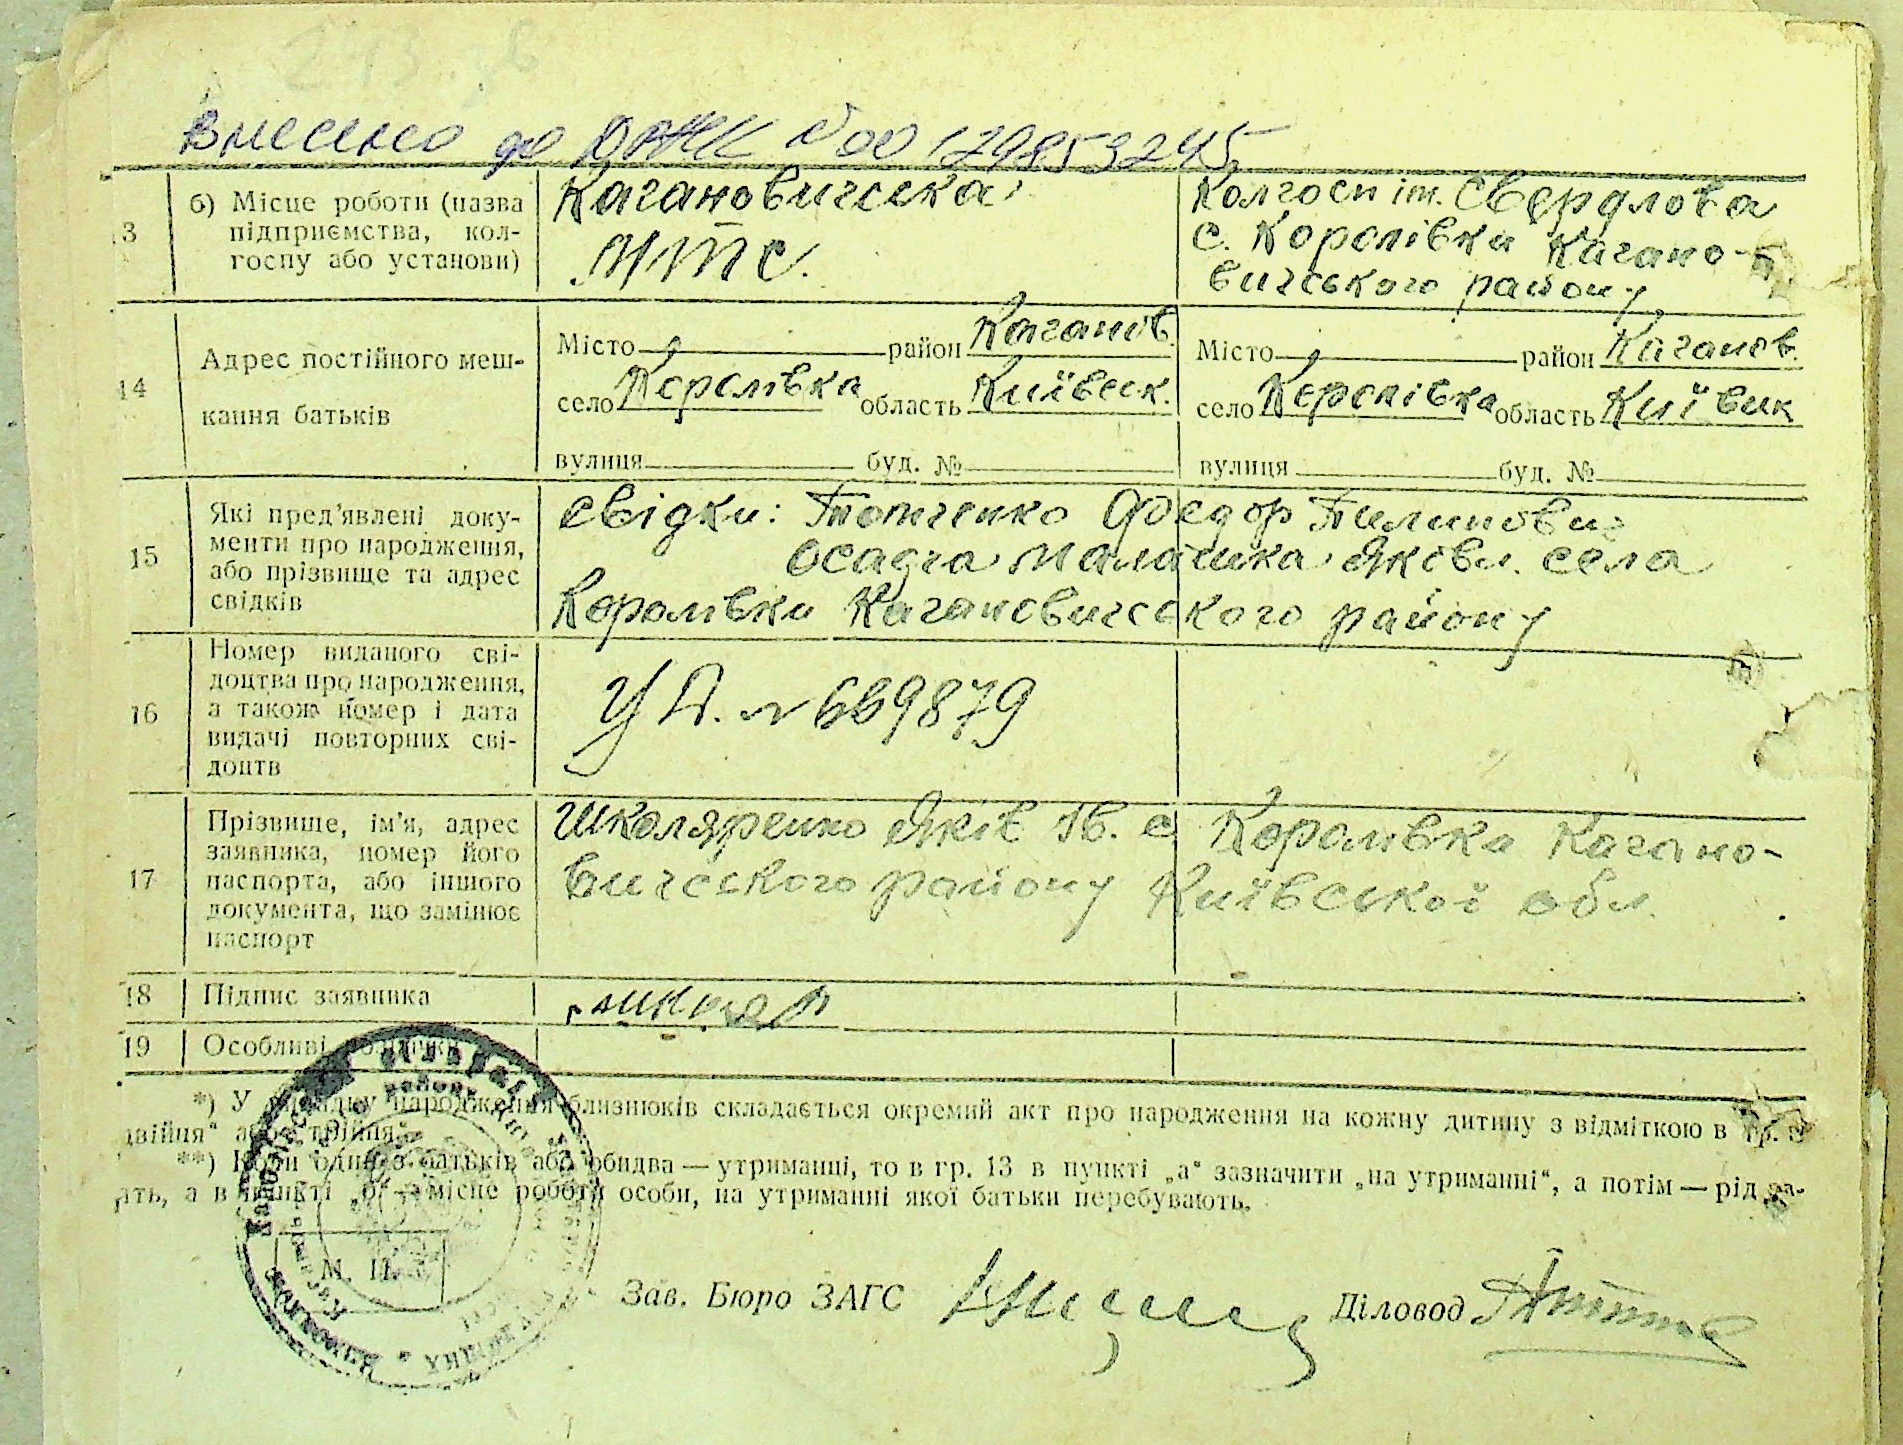 Внесено до ДРАЦС №00179853245
13 б) Місце роботи (назва підприємства, колгоспу або установи)
Кагановичська МТС.
Колгосп ім. Свердлова
с. Королівки Кагано-
вичського району
14 Адрес постійного меш-
кання батьків
Місто район Каганов.
село Королівка область Київськ.
вулиця буд. №
Місто район Каганов.
село Королівка область Київськ
вулиця буд. №
15 Які пред'явлені доку-
менти про народження,
або прізвище та адрес
свідків
свідки: Федор Пилипович
Осадча Малашка Яковл. села
Королівки Кагановичського району
16 Номер виданого сві-
доцтва про народження,
а також номер і дата
видачі повторних сві-
доцтв
№ 669879
17 Прізвище, ім'я, адрес
заявника, номер його
паспорта, або іншого
документа, що замінює
паспорт
Школяренко Яків Ів. с. Королівка Кагано-
вичського району Київської обл.
18 Підпис заявника
19 Особливі
*) У народження близнюків складається окремий акт про народження на кожну дитину з відміткою в гр.
двійня" або „трійня".
**) Коли один з батьків або обидва — утриманці, то в гр. 13 в пункті „а" зазначити „на утриманні", а потім — рід за-
ять, а в пункті „б" — місце роботи особи, на утриманні якої батьки перебувають.
М. П.
Зав. Бюро ЗАГС Діловод